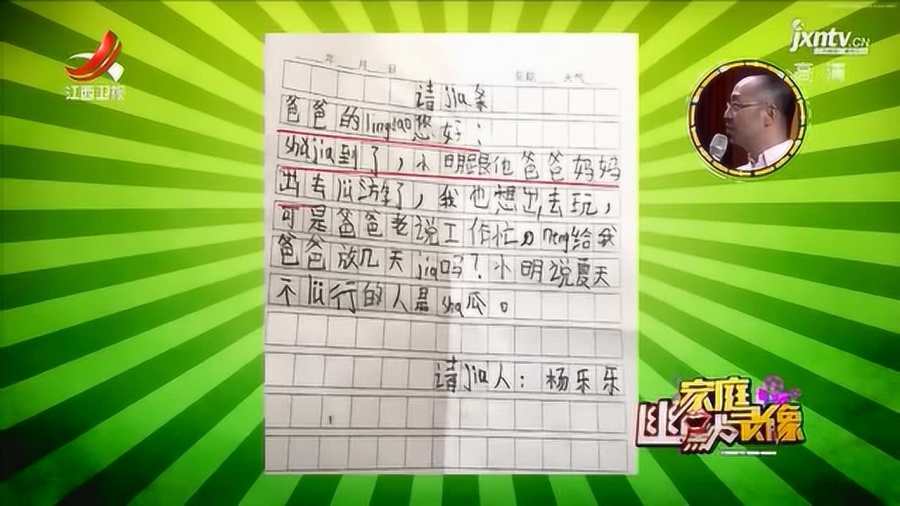 江西卫视
jxntv.CN
高清
年 月 日 星期 天气
请jia条
爸爸的lingdao您好：
shǔjia到了，小明跟他爸爸妈妈
出去lǚ游了，我也想出去玩，
可是爸爸老说工作忙，neng给我
爸爸放几天jia吗？小明说夏天
不lǚ行的人是sha瓜。
请jia人：杨乐乐
家庭
幽默录像